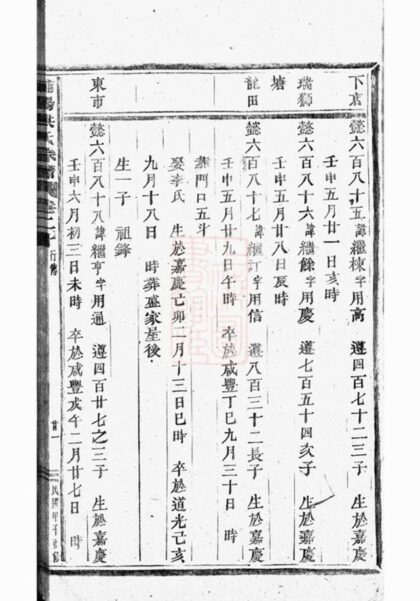 下京
懿六百八十五 諱繼棟 字用高 遵四百七十二三子 生於嘉慶
壬申五月廿一日亥時
瑞獅
懿六百八十六 諱繼餘 字用慶 遵七百五十四次子 生於嘉慶
塘
壬申五月廿八日辰時
龍田
懿六百八十七 諱繼訂 字用信 遵八百三十二長子 生於嘉慶
壬申五月廿九日午時 卒於咸豐丁巳九月三十日 時
葬門口五斗
娶李氏 生於嘉慶己卯二月十三日巳時 卒於道光己亥
九月十八日 時葬盔家屋後
生一子 祖鋒
東市
懿六百八十八 諱繼亨 字用通 遵四百廿七之三子 生於嘉慶
壬申六月初三日未時 卒於咸豐戊午二月廿七日 時
氏族譜
行傳
廿一
民國甲子